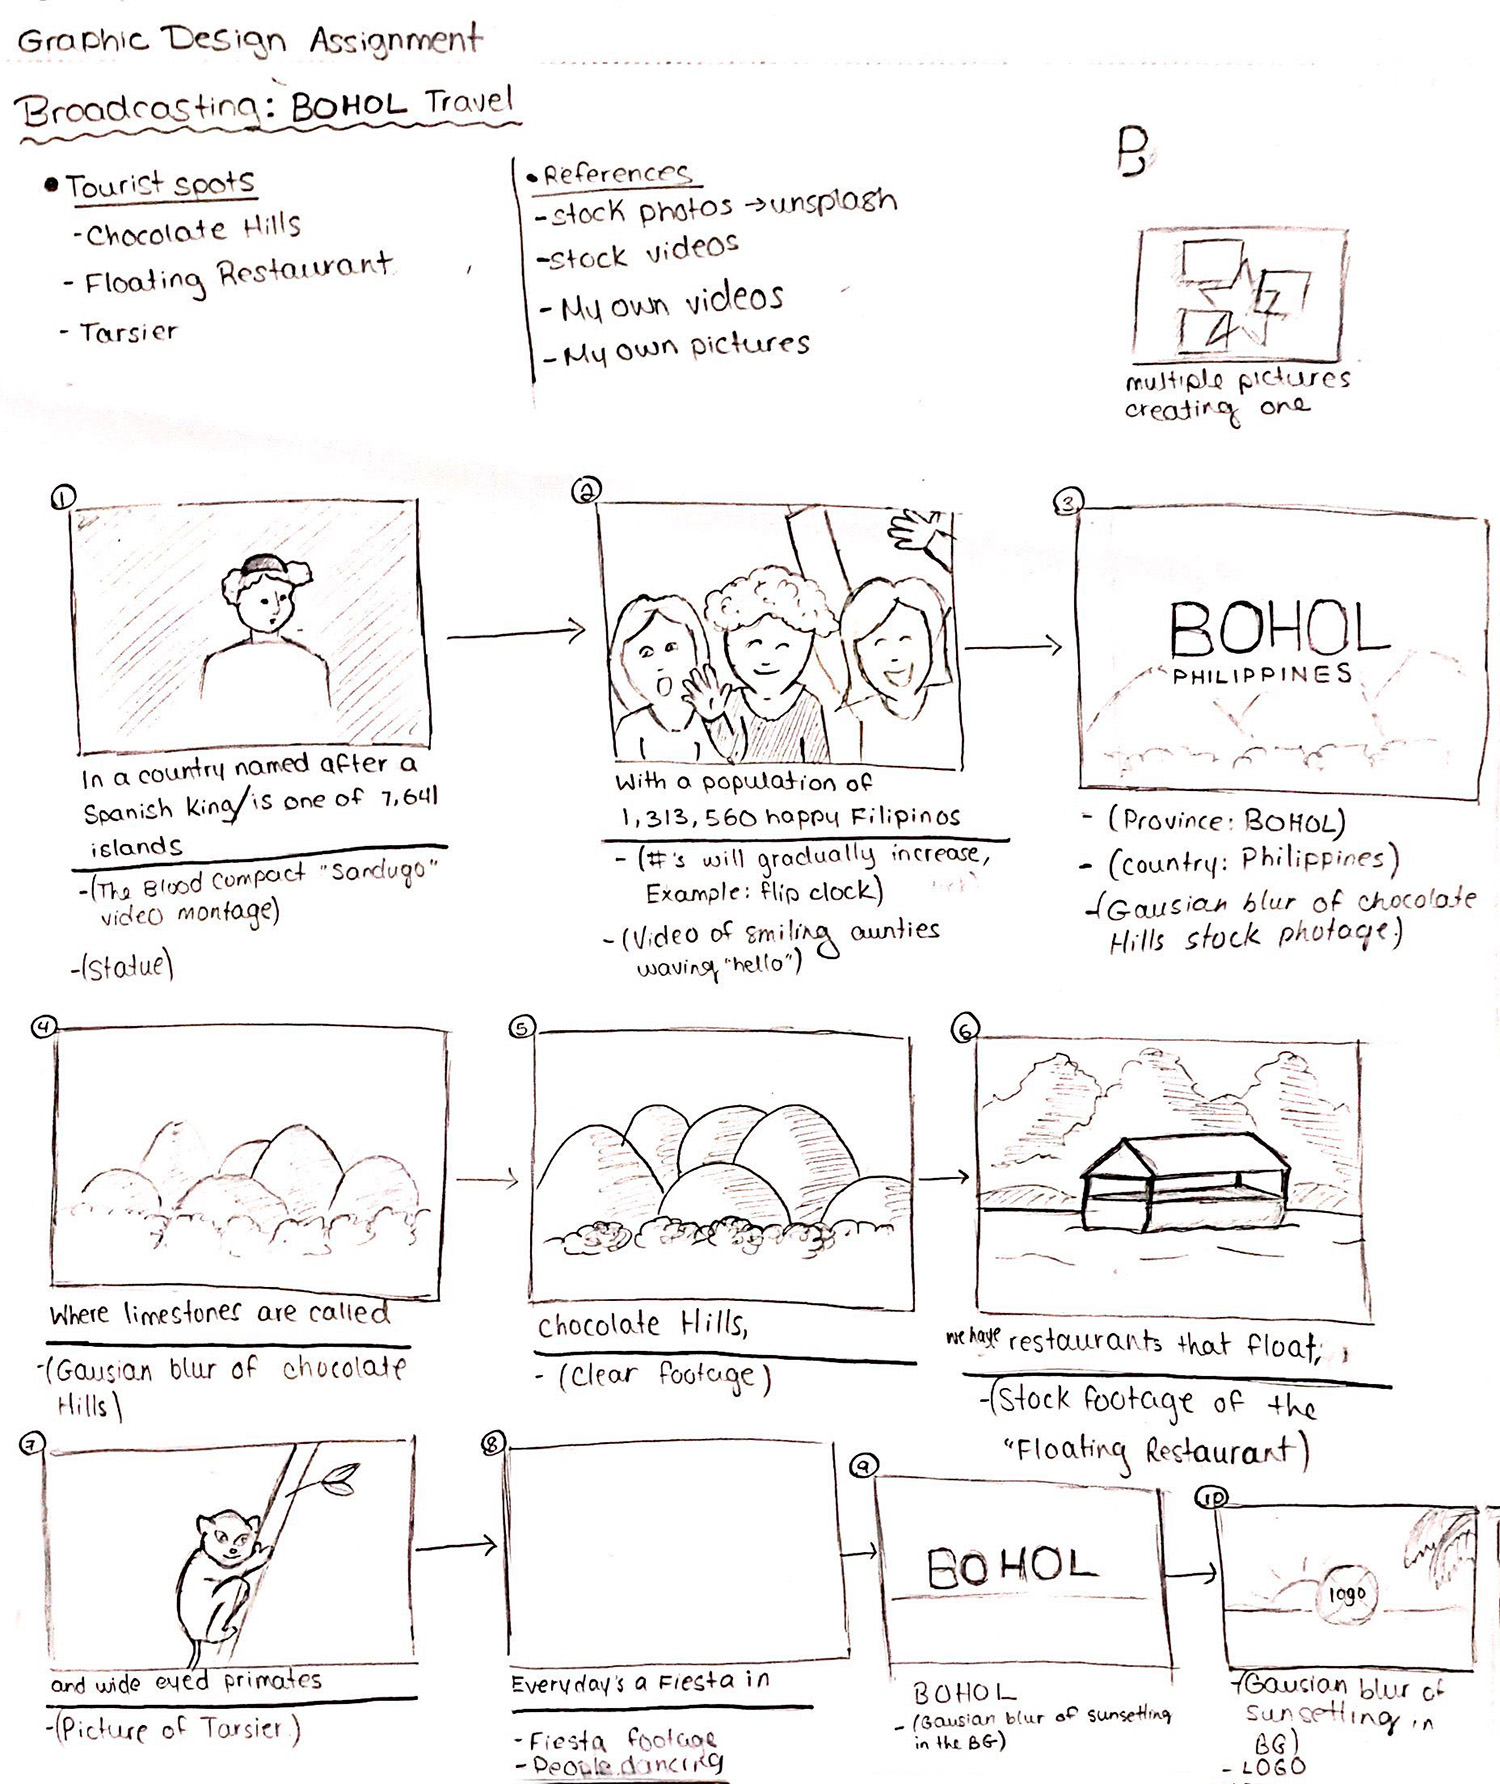 Graphic Design Assignment
Broadcasting: BOHOL Travel
• Tourist spots
- Chocolate Hills
- Floating Restaurant
- Tarsier
• References
- stock photos → unsplash
- stock videos
- My own videos
- My own pictures
B
multiple pictures
creating one
1
In a country named after a
Spanish King/is one of 7,641
islands
-(The Blood compact "Sandugo"
video montage)
-(Statue)
2
With a population of
1,313,560 happy Filipinos
- (#'s will gradually increase,
Example: flip clock)
-(Video of smiling aunties
waving "hello")
3
BOHOL
PHILIPPINES
- (Province: BOHOL)
- (country: Philippines)
-(Gausian blur of chocolate
Hills stock photage.)
4
Where limestones are called
-(Gausian blur of chocolate
Hills)
5
chocolate Hills,
- (Clear footage)
6
we have restaurants that float,
-(Stock footage of the
"Floating Restaurant)
7
and wide eyed primates
-(Picture of Tarsier.)
8
Everyday's a Fiesta in
- Fiesta footage
- People dancing
9
BOHOL
BOHOL
- (Gausian blur of sunsetting
in the BG)
10
logo
-(Gausian blur of
sunsetting in
BG)
- LOGO